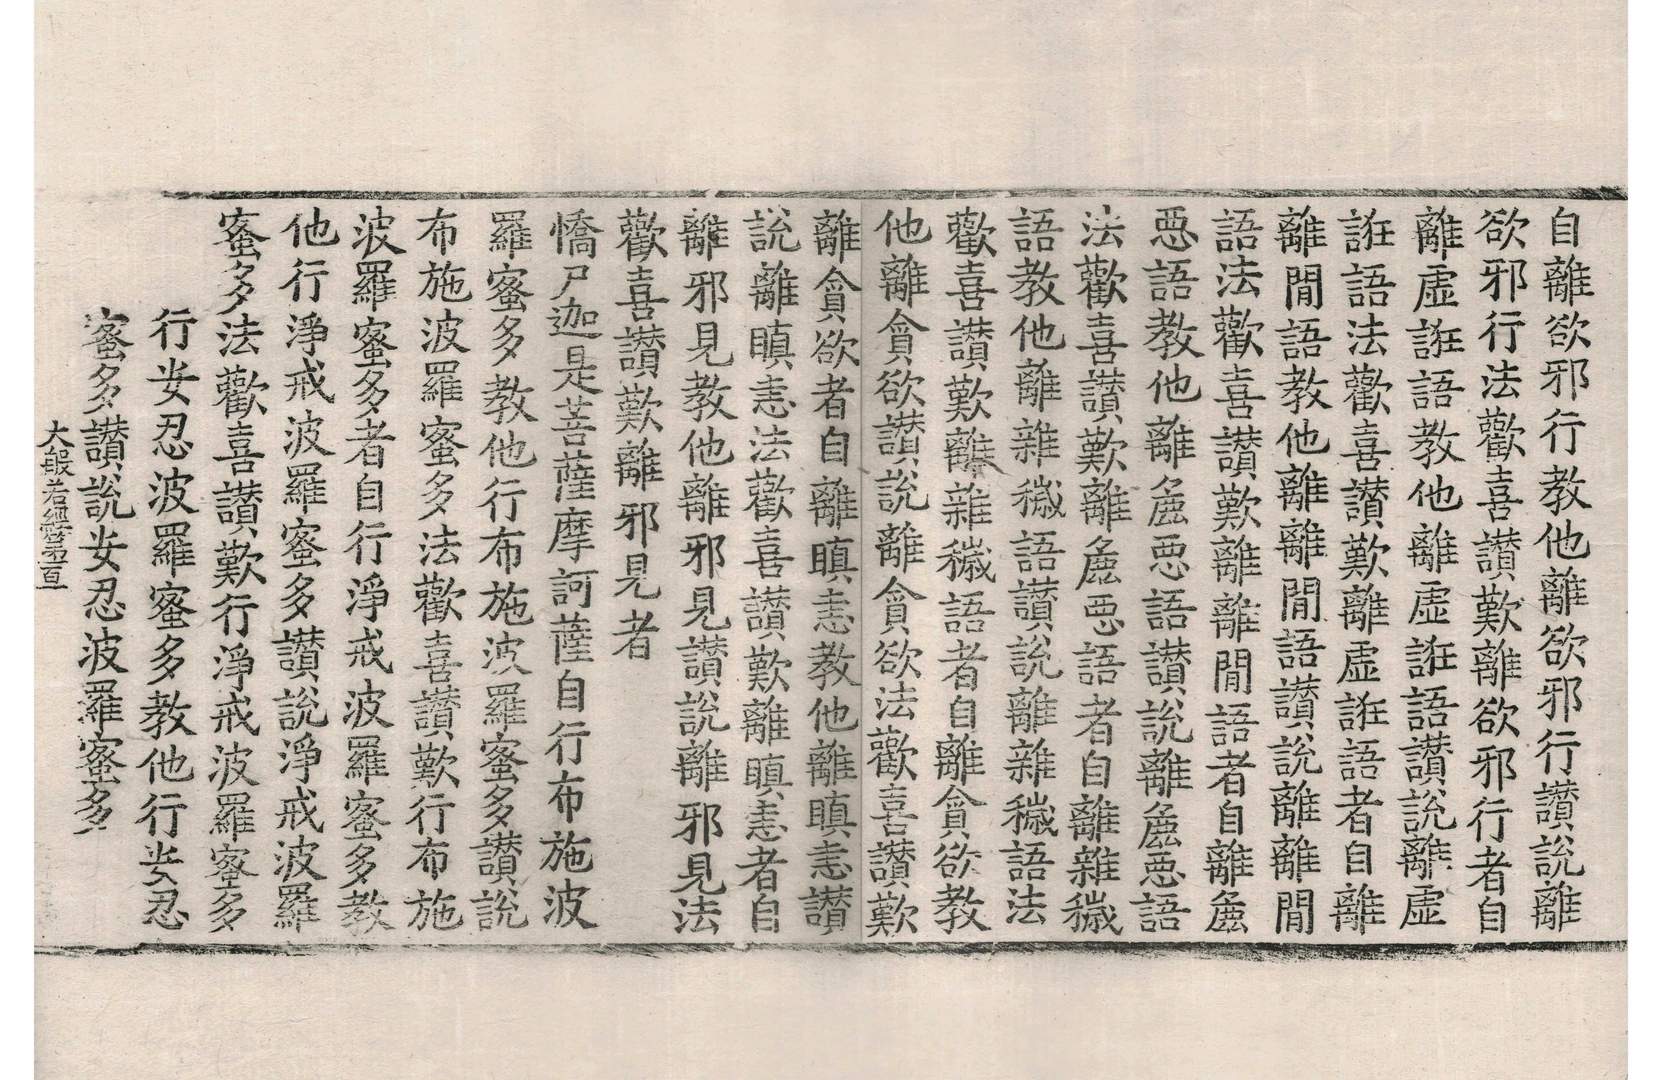 自離欲邪行教他離欲邪行讃說離
欲邪行法歡喜讃歎離欲邪行者自
離虛誑語教他離虛誑語讃說離虛
誑語法歡喜讃歎離虛誑語者自離
離閒語教他離離閒語讃說離離閒
語法歡喜讃歎離離閒語者自離麁
惡語教他離麁惡語讃說離麁惡語
法歡喜讃歎離麁惡語者自離雜穢
語教他離雜穢語讃說離雜穢語法
歡喜讃歎離雜穢語者自離貪欲教
他離貪欲讃說離貪欲法歡喜讃歎
離貪欲者自離瞋恚教他離瞋恚讃
說離瞋恚法歡喜讃歎離瞋恚者自
離邪見教他離邪見讃說離邪見法
歡喜讃歎離邪見者
憍尸迦是菩薩摩訶薩自行布施波
羅蜜多教他行布施波羅蜜多讃說
布施波羅蜜多法歡喜讃歎行布施
波羅蜜多者自行淨戒波羅蜜多教
他行淨戒波羅蜜多讃說淨戒波羅
蜜多法歡喜讃歎行淨戒波羅蜜多
行安忍波羅蜜多教他行安忍
蜜多讃說安忍波羅蜜多
大般若經第百